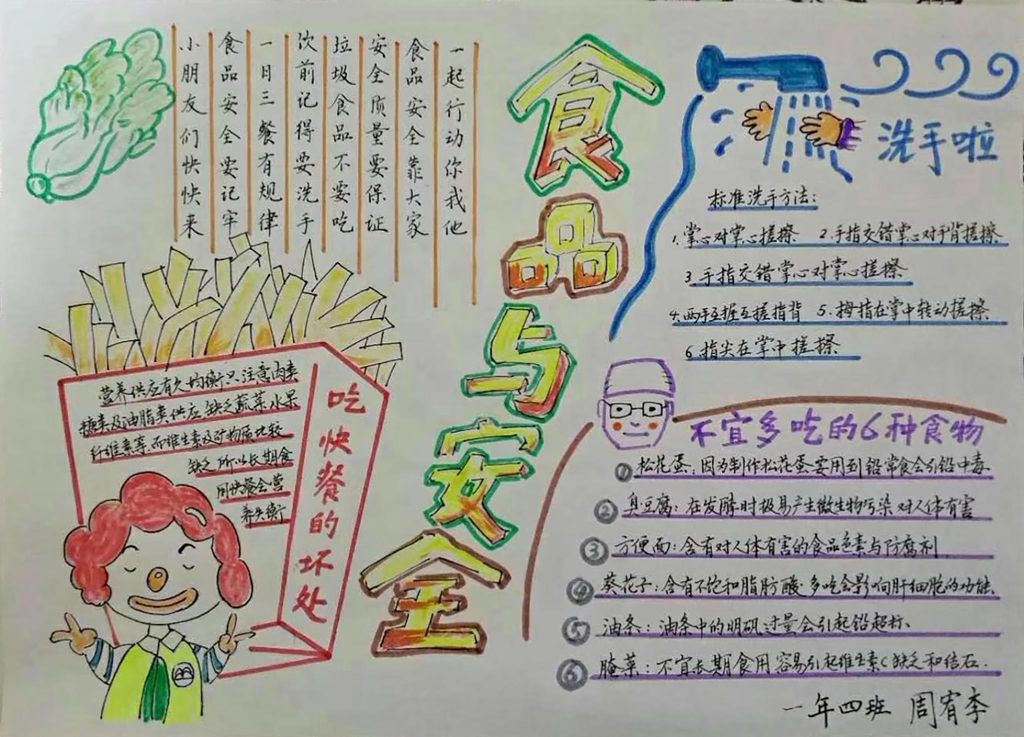 食品与安全
小朋友们快快来
食品安全要记牢
一日三餐有规律
次前记得要洗手
垃圾食品不要吃
安全质量要保证
食品安全靠大家
一起行动你我他
洗手啦
标准洗手方法:
1.掌心对掌心搓擦 2.手指交错掌心对手背搓擦
3.手指交错掌心对掌心搓擦
4.两手互握互搓指背 5.拇指在掌中转动搓擦
6.指尖在掌中搓擦
吃快餐的坏处
营养供应有欠均衡只注意肉类
糖类及油脂类供应缺乏蔬菜水果
纤维素等.而维生素及矿物质比较
缺乏所以长期食
用快餐会营
养失衡
不宜多吃的6种食物
①松花蛋:因为制作松花蛋要用到铅常食会引铅中毒
②臭豆腐:在发酵时极易产生微生物污染对人体有害
③方便面:含有对人体有害的食品色素与防腐剂
④葵花子:含有不饱和脂肪酸.多吃会影响肝细胞的功能.
⑤油条:油条中的明矾过量会引起铅超标、
⑥腌菜:不宜长期食用容易引起维生素C缺乏和结石.
一年四班 周宥李